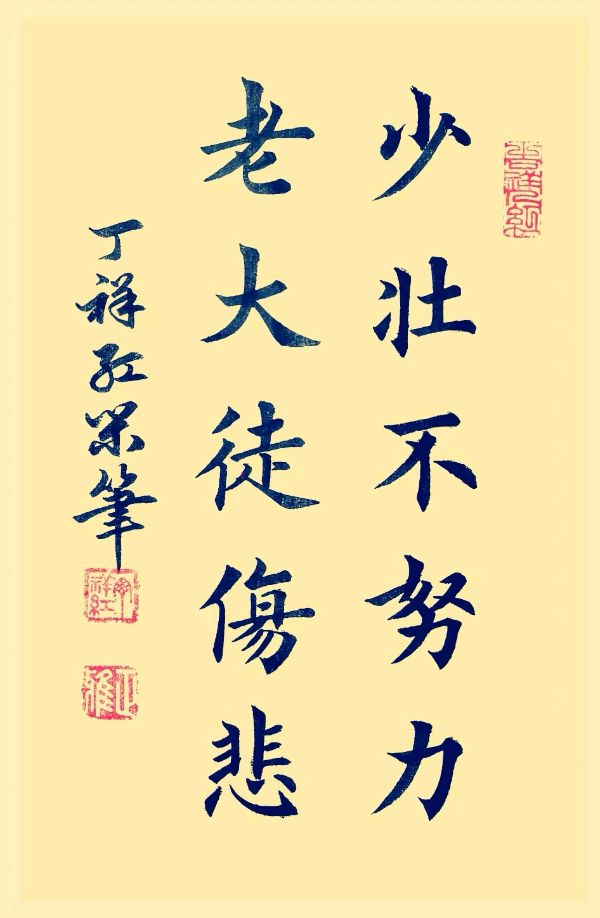 少壮不努力
老大徒傷悲
丁祥红荣筆